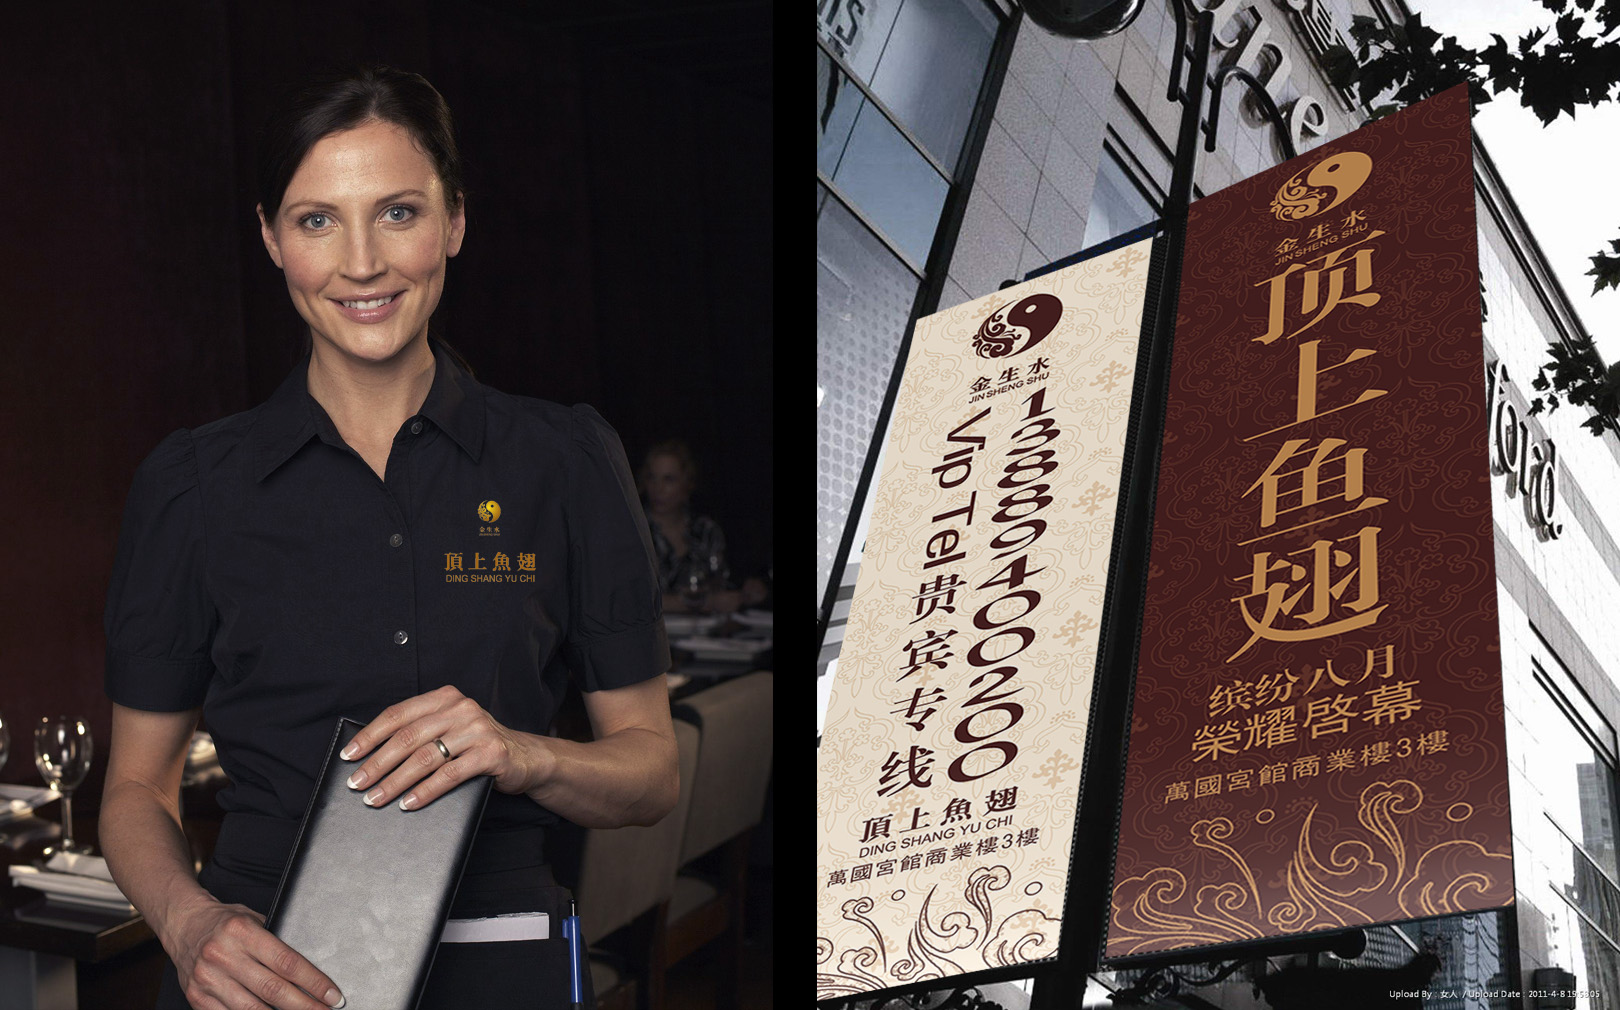 金生水
JIN SHENG SHU
頂上魚翅
DING SHANG YU CHI
金生水
JIN SHENG SHU
13889400200
Vip Tel 贵宾专线
頂上魚翅
DING SHANG YU CHI
萬國宮館商業樓3樓
金生水
JIN SHENG SHU
顶上鱼翅
缤纷八月
榮耀啓幕
萬國宮館商業樓3樓
the
World
Upload By : 女人 / Upload Date : 2011-4-8 19:53:05